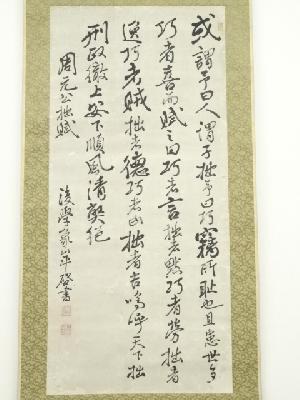 或謂予曰人謂子拙予曰巧竊所恥也且患世多
巧者喜而賦之曰巧者言拙者黙巧者勞拙者
逸巧者賊拙者德巧者凶拙者吉嗚呼天下拙
刑政徹上安下順風清弊絶
周元公拙賦
後學象山平啓書